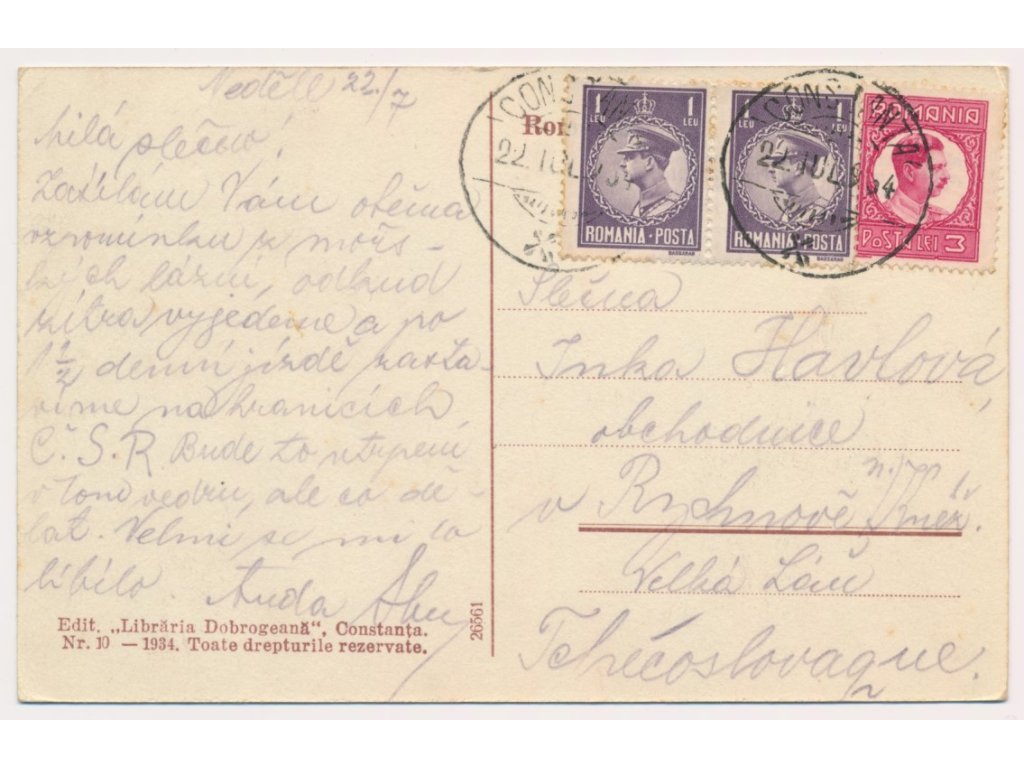 Neděle 22./7
Milá slečno!
Zasílám Vám
vzpomínku z mořs-
kých lázní, odkud
zítra vyjedeme a po
1 1/2 denní jízdě zasta-
víme na hranicích
Č.S.R. Bude to utrpení
v tom vedru, ale co dě-
lat. Velmi se mi to
líbilo.
Edit. „Librăria Dobrogeană“, Constanța.
Nr. 10 — 1934. Toate drepturile rezervate.
26561
CONSTANTA
22 IUL
1 LEU
1 LEU
ROMANIA·POSTA
BASSARAB
CONSTANTA
22 IUL 934
1 LEU
1 LEU
ROMANIA·POSTA
BASSARAB
ROMANIA
POSTA LEI 3
Slečna
Inka Havlová
obchodnice
v Rychnově n./Kněž.
Velká
Tchécoslovaque.